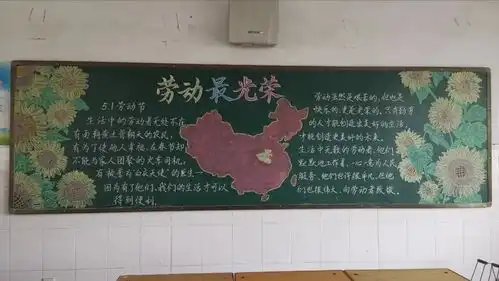 劳动最光荣
5.1劳动节
生活中的劳动者无处不在
有面朝黄土背朝天的农民，
有为了使她人幸福，在春节却
不能与家人团聚的火车司机，
有被誉为“白衣天使”的医生…
因为有了他们，我们的生活才可以
得到便利。
劳动虽然是艰苦的，但也是
快乐的，更是光荣的。只有勤劳
的人才能创造出美好的生活，
才能创造更美好的未来。
生活中无数的劳动者，他们
默默地工作着，心心意为人民
服务，他们也许很平凡，但他
们也很伟大，向劳动者致敬。